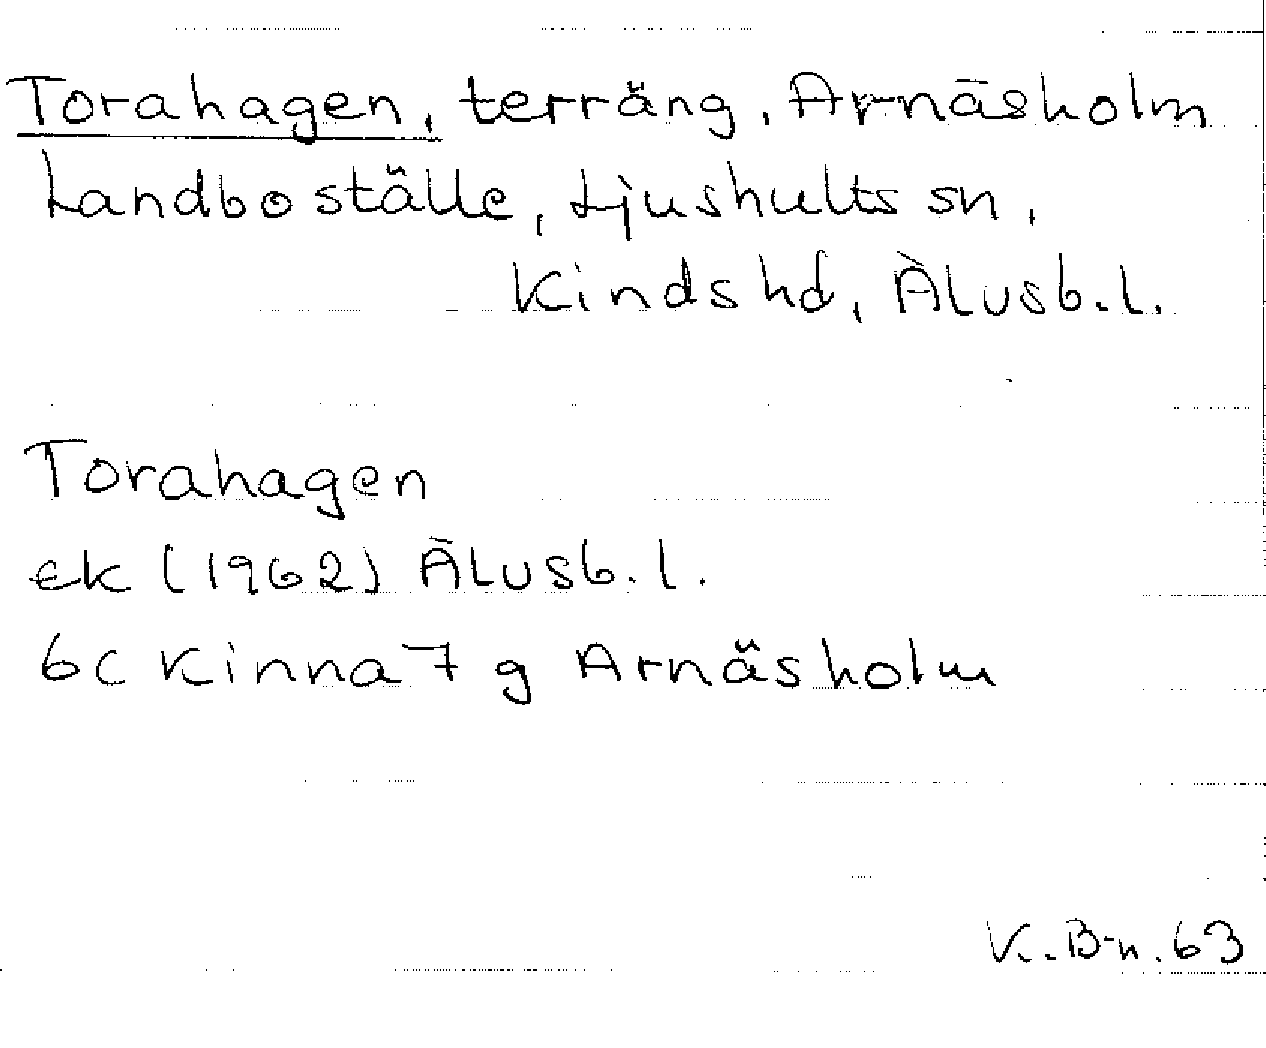 Torahagen, terräng, Arnäsholm
Landboställe, Ljushults sn,
Kinds hd, Älvsb. l.
Torahagen
ek (1962) Älvsb. l.
6C Kinna 7 g Arnäsholm
K. B-n. 63